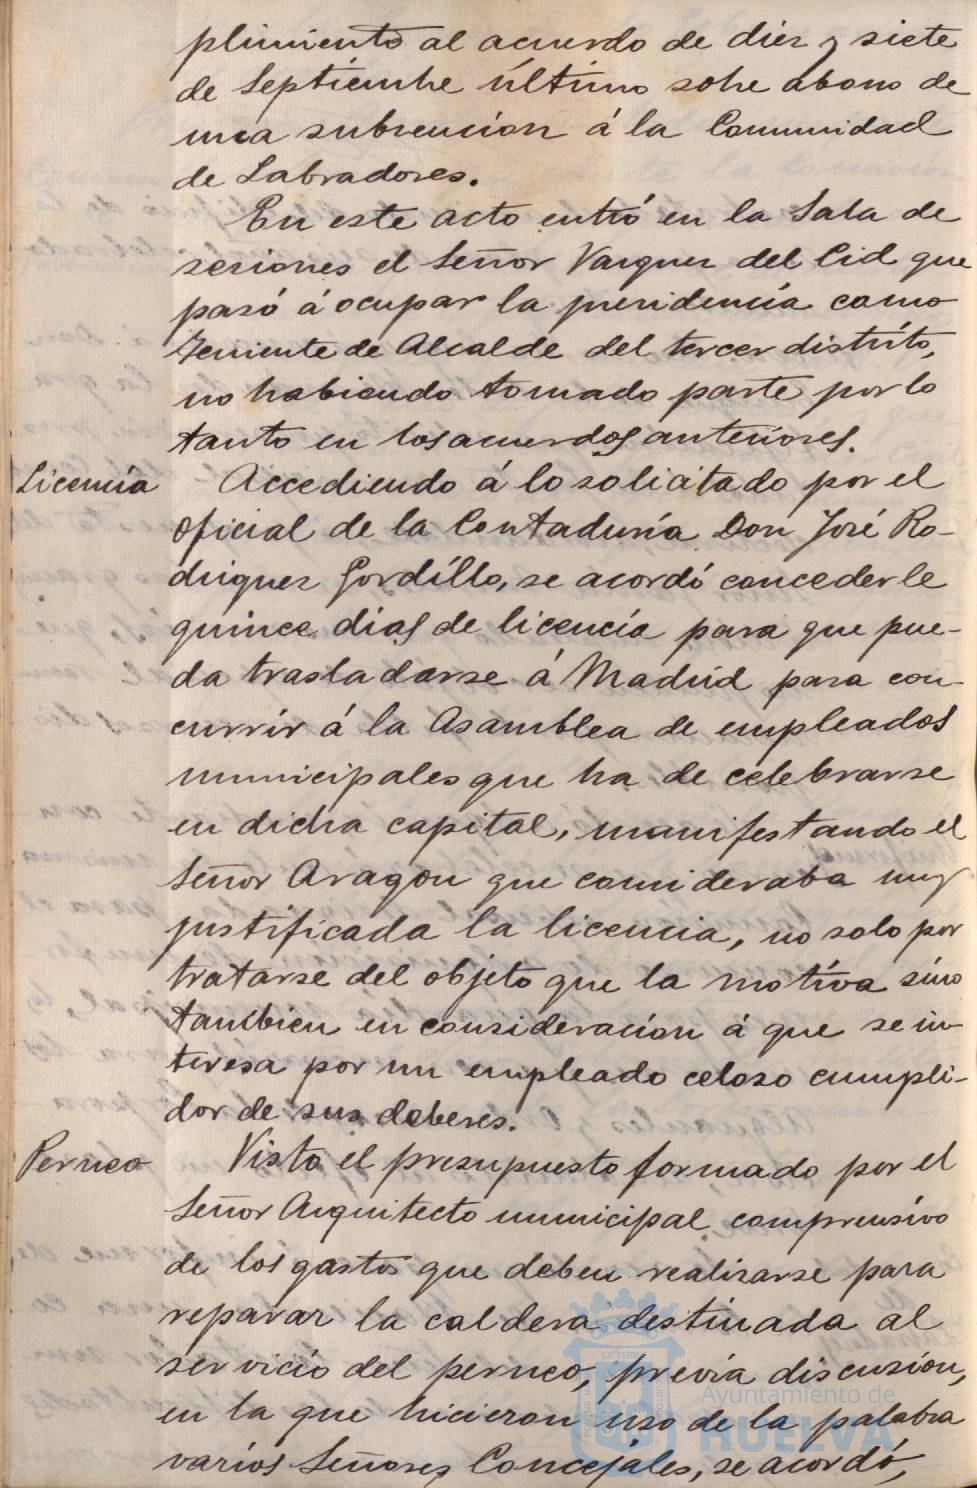 plimiento al acuerdo de diez y siete
de Septiembre último sobre abono de
una subvención á la Comunidad
de Labradores.
En este acto entró en la Sala de
sesiones el Señor Vazquez del Cid que
pasó á ocupar la presidencia como
Teniente de Alcalde del tercer distrito,
no habiendo tomado parte por lo
tanto en los acuerdos anteriores.
Licencia
Accediendo á lo solicitado por el
oficial de la Contaduría Don José Ro-
driguez Gordillo, se acordó concederle
quince dias de licencia para que pue-
da trasladarse á Madrid para con-
currir á la Asamblea de empleados
municipales que ha de celebrarse
en dicha capital, manifestando el
Señor Aragon que consideraba muy
justificada la licencia, no solo por
tratarse del objeto que la motiva sino
tambien en consideración á que se in-
teresa por un empleado celoso cumpli-
dor de sus deberes.
Perneo
Visto el presupuesto formado por el
Señor Arquitecto municipal comprensivo
de los gastos que deben realizarse para
reparar la caldera destinada al
servicio del perneo, previa discusión,
en la que hicieron uso de la palabra
varios Señores Concejales, se acordó,
Ayuntamiento de
HUELVA